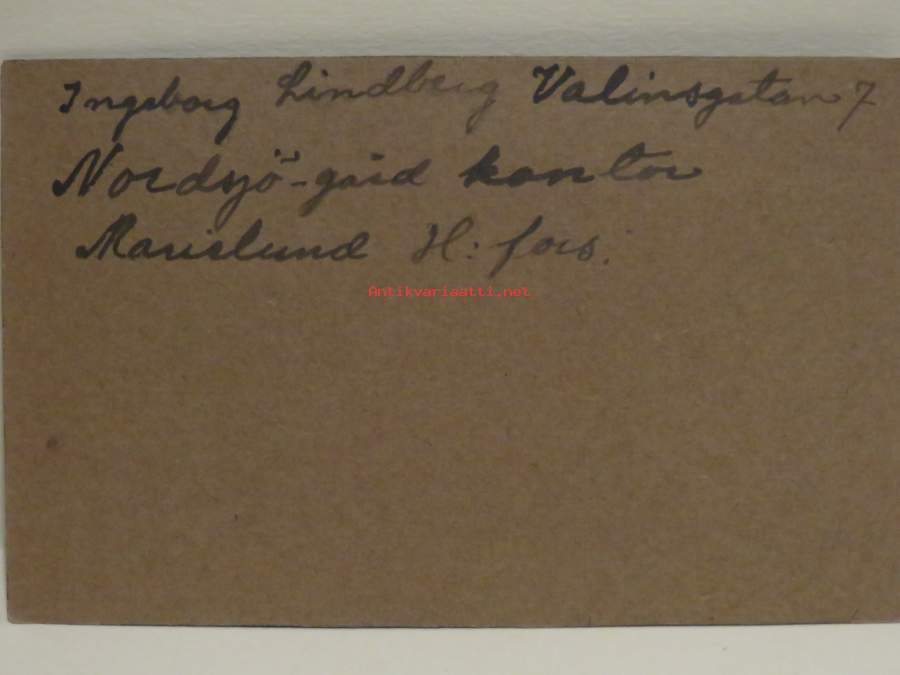 Ingeborg Lindberg Valinsgatan 7
Nordsjö-gård kontor
Marielund H:fors.
Antikvariaatti.net